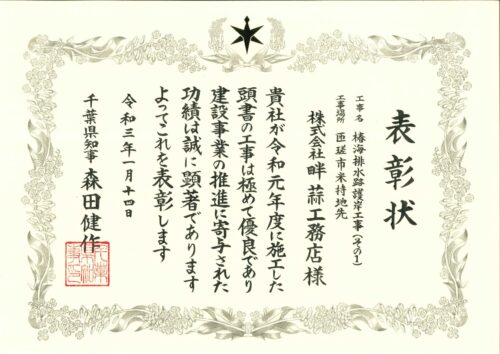 表彰状
工事名 椿海排水路護岸工事(その1)
工事場所 匝瑳市米持地先
株式会社畔蒜工務店様
貴社が令和元年度に施工した
頭書の工事は極めて優良であり
建設事業の推進に寄与された
功績は誠に顕著であります
よってこれを表彰します
令和三年一月十四日
千葉県知事 森田健作